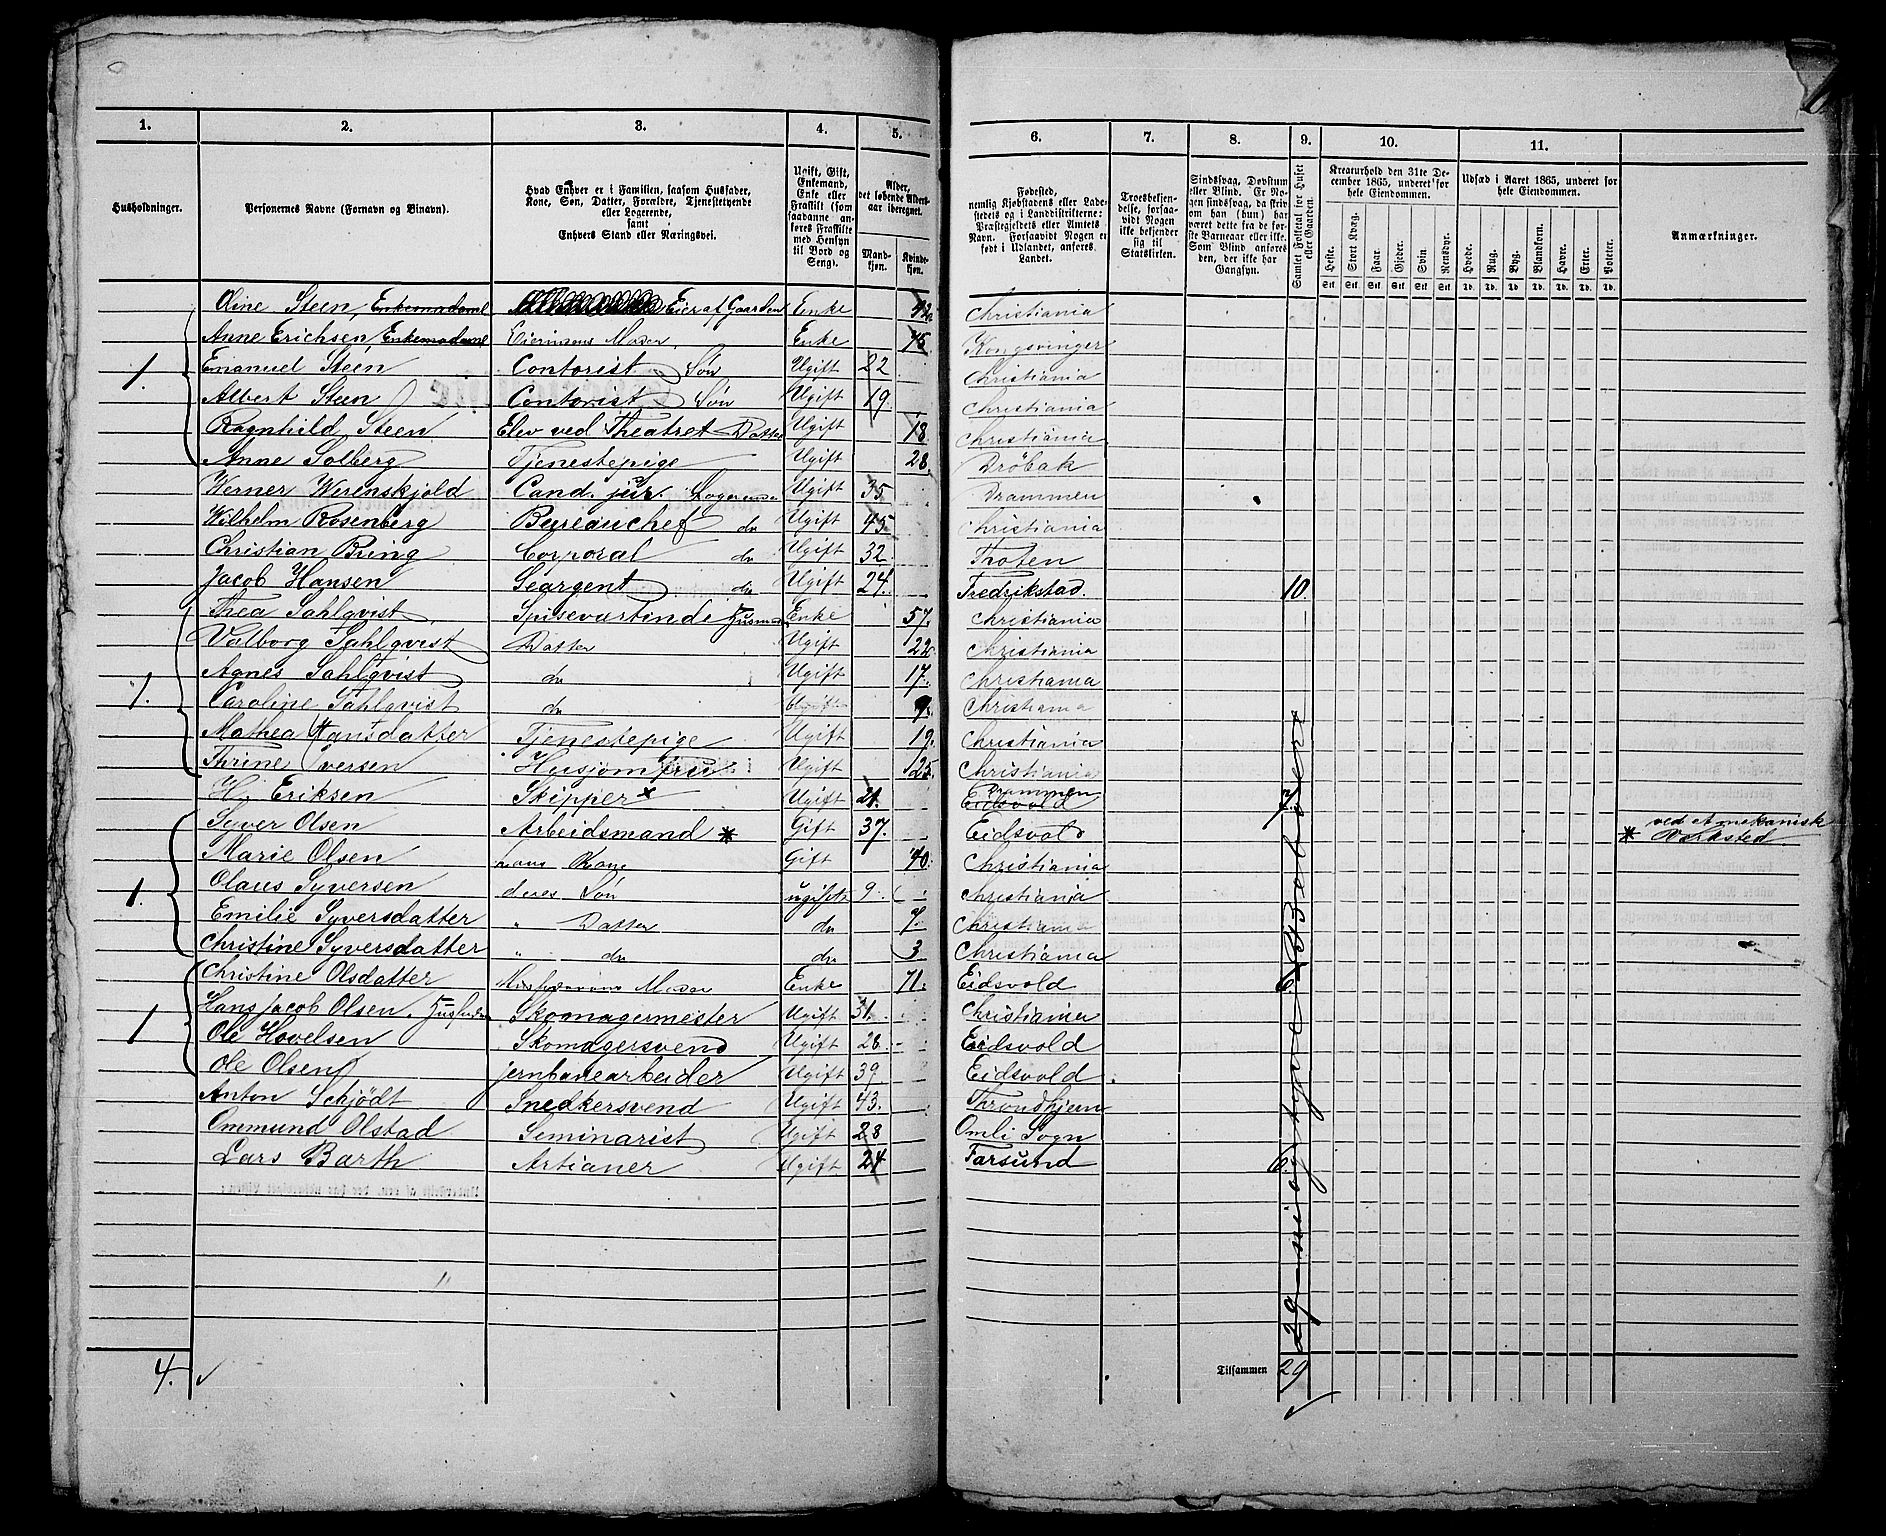 1. 2. 3. 4. 5. 6. 7. 8. 9. 10. 11.
Husholdninger.
Personernes Navne (Fornavn og Binavn).
Hvad Enhver er i Familien, saasom Husfader,
Kone, Søn, Datter, Forældre, Tjenestetyende
eller Logerende,
samt
Enhvers Stand eller Næringsvei.
Ugift, Gift,
Enkemand,
Enke eller
Fraskilt (som
saadanne an-
føres Fraskilte
med Hensyn
til Bord og
Seng).
Alder,
det løbende Alders-
aar iberegnet.
Mand-
kjøn.
Kvinde-
kjøn.
Fødested,
nemlig Kjøbstadens eller Lade-
stedets og i Landdistrikterne:
Præstegjeldets eller Amtets
Navn. Forsaavidt Nogen er
født i Udlandet, anføres
Landet.
Troesbekjen-
delse, forsaa-
vidt Nogen
ikke bekjender
sig til
Statskirken.
Sindssvag, Døvstum
eller Blind. Er No-
gen sindssvag, da skriv
om han (hun) har
været dette fra de før-
ste Barneaar eller ikke.
Som Blind anføres
den, der ikke har
Gangsyn.
Samlet Folketal for Huset
eller Gaarden.
Kreaturhold den 31te De-
cember 1865, underet for
hele Eiendommen.
Heste. Stort Kvæg. Faar. Gjeder. Svin. Rensdyr.
Stk. Stk. Stk. Stk. Stk. Stk.
Udsæd i Aaret 1865, underet for
hele Eiendommen.
Hvede. Rug. Byg. Blandkorn. Havre. Erter. Poteter.
Td. Td. Td. Td. Td. Td. Td.
Anmærkninger.
Oline Steen, Enkemadame Eier af Gaarden Enke 42 Christiania
Anne Erichsen, Enkemadame Eierindens Moder Enke 75. Kongsvinger
1. Emanuel Steen Contorist Søn Ugift 22 Christiania
Albert Steen Contorist Søn Ugift 19. Christiania
Ragnhild Steen Elev ved Theatret Datter Ugift 18. Christiania
Anne Solberg Tjenestepige Ugift 28. Drøbak
Werner Werenskjold Cand. jur. Logerende Ugift 35 Drammen
Wilhelm Rosenberg Bureauchef do Ugift 45 Christiania
Christian Bring Corporal do Ugift 32 Thoten
Jacob Hansen Seargent do Ugift 24. Fredrikstad. 10.
Thea Sahlqvist Spiseværtinde Husmoder Enke 57. Christiania
Valborg Sahlqvist Datter Ugift 22 Christiania
Agnes Sahlqvist do Ugift 17. Christiania
1. Caroline Sahlqvist do Ugift 9. Christiania
Mathea Hansdatter Tjenestepige Ugift 19. Christiania
Thrine Iversen Husjomfru Ugift 25. Christiania
H. Eriksen Skipper x Ugift 21. Eidsvold Drammen 7.
Syver Olsen Arbeidsmand * Gift 37. Eidsvold * ved et mekanisk
Værksted.
Marie Olsen hans Kone Gift 40. Christiania
1. Olaus Syversen deres Søn ugift 9. Christiania
Emilie Syversdatter " Datter do 7. Christiania
Christine Syversdatter " do do 3 Christiania
Christine Olsdatter Moder Enke 71. Eidsvold 6.
1 Hans Jacob Olsen. Husfader Skomagermester Ugift 31. Christiania
Ole Hovelsen Skomagersvend Ugift 28. Eidsvold
Ole Olsen jernbanearbeider Ugift 39 Eidsvold
Anton Schjödt Snedkersvend Ugift 43. Throndhjem
Ommund Olstad Seminarist Ugift 28 Omli Sogn
Lars Barth Artianer Ugift 24 Farsund 6.
29 – ni og tyve Beboere
4.
Tilsammen 29